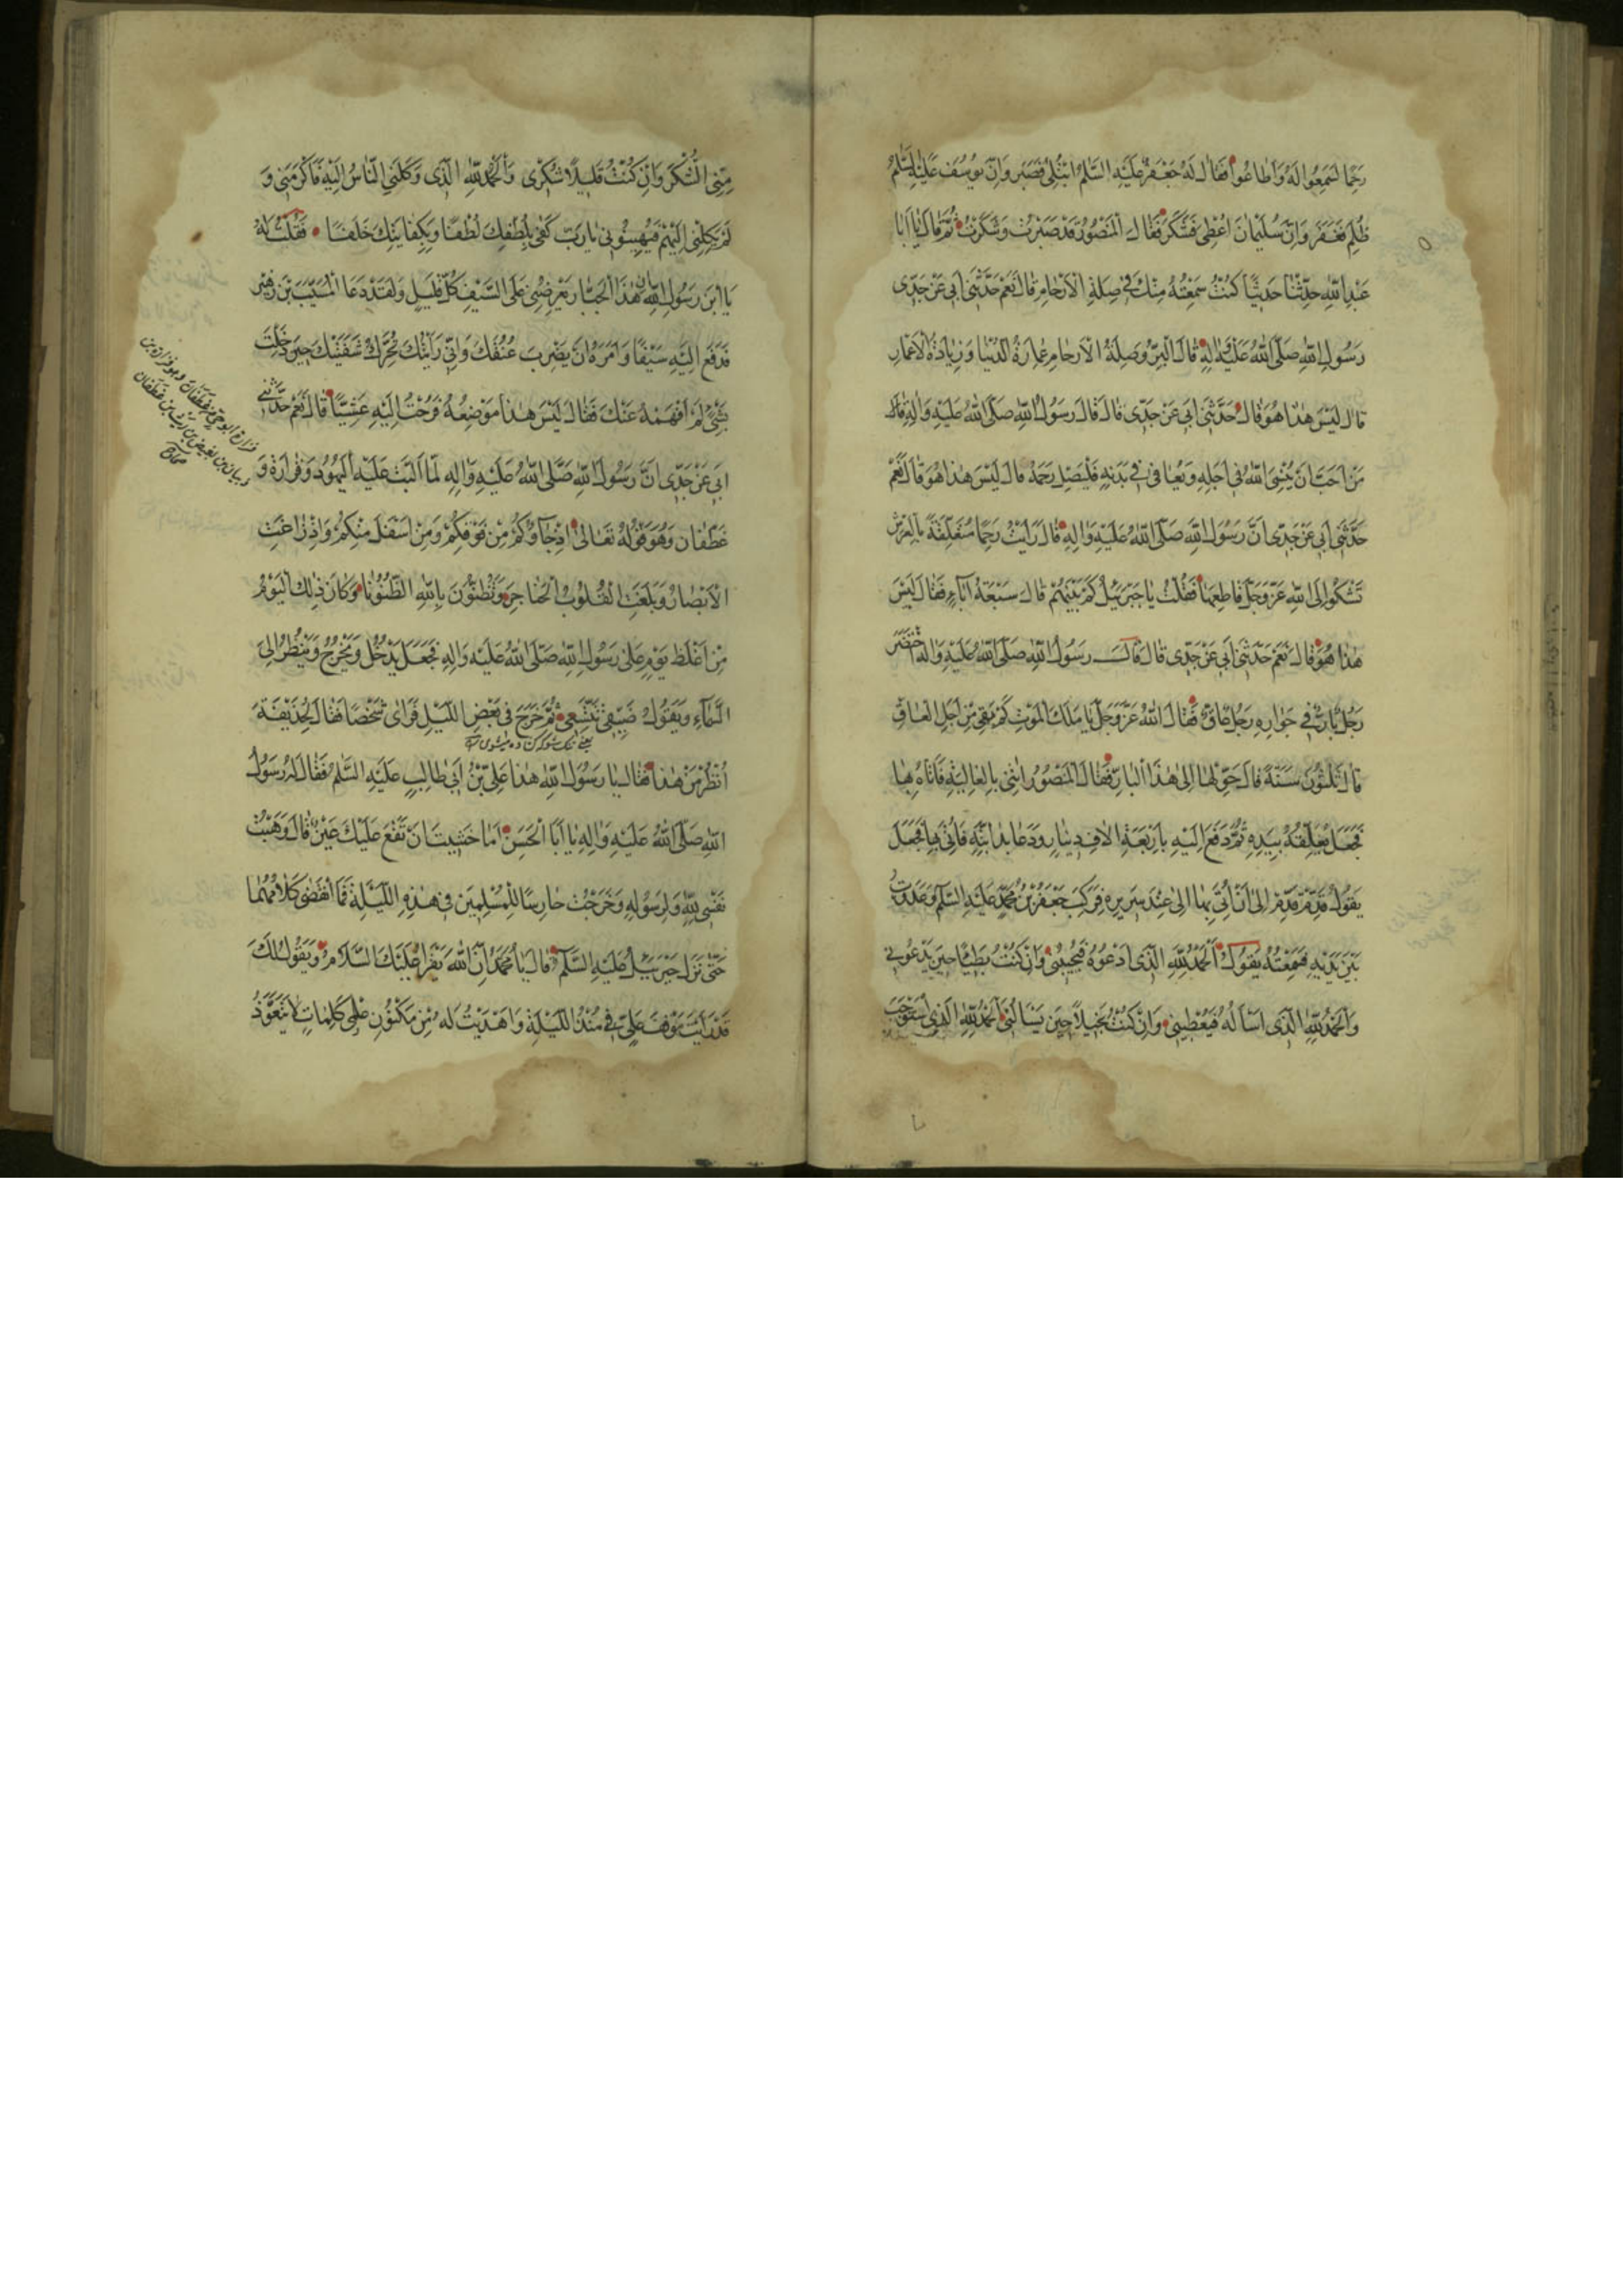 رَحِمًا لَسَمِعُوا لَهُ وَاَطاعُوا فَقالَ لَهُ جَعْفَرٌ عَلَيْهِ السَّلامُ ابْتُلِىَ فَصَبَر وَاِنَّ يُوسُفَ عَلَيْهِ السَّلامُ
ظُلِمَ فَغَفَرَ وَاِنَّ سُلَيْمانَ اُعْطِىَ فَشَكَرَ فَقالَ الْمَنْصُورُ قَدْ صَبَرْتُ وَشَكَرْتُ ثُمَّ قالَ يا اَبا
عَبْدِ اللّٰهِ حَدِّثْنا حَديثًا كُنْتُ سَمِعْتُهُ مِنْكَ فى صِلَةِ الْاَرْحامِ قالَ نَعَمْ حَدَّثَنى اَبى عَنْ جَدّى
رَسُولِ اللّٰهِ صَلَّى اللّٰهُ عَلَيْهِ وَاٰلِهِ قالَ الْبِرُّ وَصِلَةُ الْاَرْحامِ عِمارَةُ الدُّنْيا وَزِيادَةُ الْاَعْمارِ
قالَ لَيْسَ هٰذا هُوَ قالَ حَدَّثَنى اَبى عَنْ جَدّى قالَ قالَ رَسُولُ اللّٰهِ صَلَّى اللّٰهُ عَلَيْهِ وَاٰلِهِ قالَ
مَنْ اَحَبَّ اَنْ يُنْسِىَ اللّٰهُ فى اَجَلِهِ وَيُعافى فى بَدَنِهِ فَلْيَصِلْ رَحِمَهُ قالَ لَيْسَ هٰذا هُوَ قالَ نَعَمْ
حَدَّثَنى اَبى عَنْ جَدّى اَنَّ رَسُولَ اللّٰهِ صَلَّى اللّٰهُ عَلَيْهِ وَاٰلِهِ قالَ رَاَيْتُ رَحِمًا مُتَعَلِّقَةً بِالْعَرْشِ
تَشْكُوا اِلَى اللّٰهِ عَزَّ وَجَلَّ قاطِعَها فَقُلْتُ يا جَبْرَئيلُ كَمْ بَيْنَهُمْ قالَ سَبْعَةُ اٰباءٍ فَقالَ لَيْسَ
هٰذا هُوَ قالَ نَعَمْ حَدَّثَنى اَبى عَنْ جَدّى قالَ قالَ رَسُولُ اللّٰهِ صَلَّى اللّٰهُ عَلَيْهِ وَاٰلِهِ اخْتَضَرَ
رَجُلٌ بارٌّ فى جَوارِهِ رَجُلٌ عاقٌّ فَقالَ اللّٰهُ عَزَّ وَجَلَّ يا مَلَكَ الْمَوْتِ كَمْ بَقِىَ مِنْ اَجَلِ الْعاقِّ
قالَ ثَلٰثُونَ سَنَةً قالَ حَوِّلْها اِلى هٰذَا الْبارِّ فَقالَ الْمَنْصُورُ ائْتِنى بِالْغالِيَةِ فَاَتاهُ بِها
فَجَعَلَ يُغَلِّفُهُ بِيَدِهِ ثُمَّ دَفَعَ اِلَيْهِ بِاَرْبَعَةِ الافِ دينارٍ وَدَعا بِدابَّتِهِ فَاُتِىَ بِها فَجَعَلَ
يَقُولُ قَدِّمْ قَدِّمْ اِلى اَنْ اُتِىَ بِها اِلى عِنْدَ سَريرِهِ فَرَكِبَ جَعْفَرُ بْنُ مُحَمَّدٍ عَلَيْهِ السَّلامُ وَعَدَوْتُ
بَيْنَ يَدَيْهِ فَسَمِعْتُهُ يَقُولُ اَلْحَمْدُ لِلّٰهِ الَّذى اَدْعُوهُ فَيُجيبُنى وَاِنْ كُنْتُ بَطيئًا حينَ يَدْعُونى
وَالْحَمْدُ لِلّٰهِ الَّذى اَسْاَلُهُ فَيُعْطينى وَاِنْ كُنْتُ بَخيلاً حينَ يَسْاَلُنى وَالْحَمْدُ لِلّٰهِ الَّذِى اسْتَوْجَبَ
مِنِّى الشُّكْرَ وَاِنْ كُنْتُ قَليلاً شُكْرى وَالْحَمْدُ لِلّٰهِ الَّذى وَكَلَنِى النّاسُ اِلَيْهِ فَاَكْرَمَنى وَ
لَمْ يَكِلْنى اِلَيْهِمْ فَيُهينُونى يا رَبِّ كَفى بِلُطْفِكَ لُطْفًا وَبِكِفايَتِكَ خَلَفًا فَقُلْتُ لَهُ
يَا ابْنَ رَسُولِ اللّٰهِ اِنَّ هٰذَا الْجَبّارَ يَعْرِضُنى عَلَى السَّيْفِ كُلَّ قَليلٍ وَلَقَدْ دَعَا الْمُسَيَّبَ بْنَ زُهَيْرٍ
فَدَفَعَ اِلَيْهِ سَيْفًا وَاَمَرَهُ اَنْ يَضْرِبَ عُنُقَكَ وَاِنّى رَاَيْتُكَ تُحَرِّكُ شَفَتَيْكَ حينَ دَخَلْتَ
بِشَىْءٍ لَمْ اَفْهَمْهُ عَنْكَ فَقالَ لَيْسَ هٰذا مَوْضِعُهُ فَرُحْتُ اِلَيْهِ عَشِيًّا قالَ نَعَمْ حَدَّثَنى
اَبى عَنْ جَدّى اَنَّ رَسُولَ اللّٰهِ صَلَّى اللّٰهُ عَلَيْهِ وَاٰلِهِ لَمّا اَلَبَّتْ عَلَيْهِ الْيَهُودُ وَفَزارَةُ وَ
غَطَفانُ وَهُوَ قَوْلُهُ تَعالى اِذْ جاؤُكُمْ مِنْ فَوْقِكُمْ وَمِنْ اَسْفَلَ مِنْكُمْ وَاِذْ زاغَتِ
الْاَبْصارُ وَبَلَغَتِ الْقُلُوبُ الْحَناجِرَ وَتَظُنُّونَ بِاللّٰهِ الظُّنُونا وَكانَ ذٰلِكَ الْيَوْمُ
مِنْ اَغْلَظِ يَوْمٍ عَلى رَسُولِ اللّٰهِ صَلَّى اللّٰهُ عَلَيْهِ وَاٰلِهِ فَجَعَلَ يَدْخُلُ وَيَخْرُجُ وَيَنْظُرُ اِلَى
السَّماءِ وَيَقُولُ ضَيِّقى تَتَّسِعى ثُمَّ خَرَجَ فى بَعْضِ اللَّيْلِ فَرَاى شَخْصًا فَقالَ لِحُذَيْفَةَ
يعنى تنك شو كه كشاده ميشوى
اُنْظُرْ مَنْ هٰذا فَقالَ يا رَسُولَ اللّٰهِ هٰذا عَلِىُّ بْنُ اَبى طالِبٍ عَلَيْهِ السَّلامُ فَقالَ لَهُ رَسُولُ
اللّٰهِ صَلَّى اللّٰهُ عَلَيْهِ وَاٰلِهِ يا اَبَا الْحَسَنِ اَما خَشيتَ اَنْ تَقَعَ عَلَيْكَ عَيْنٌ قالَ وَهَبْتُ
نَفْسى لِلّٰهِ وَلِرَسُولِهِ وَخَرَجْتُ حارِسًا لِلْمُسْلِمينَ فى هٰذِهِ اللَّيْلَةِ فَمَا انْقَضى كَلامُهُما
حَتّى نَزَلَ جَبْرَئيلُ عَلَيْهِ السَّلامُ قالَ يا مُحَمَّدُ اِنَّ اللّٰهَ يَقْرَاُ عَلَيْكَ السَّلامَ وَيَقُولُ لَكَ
قَدْ رَاَيْتُ مَوْقِفَ عَلِىٍّ فى مُنْذُ اللَّيْلَةِ وَاَهْدَيْتُ لَهُ مِنْ مَكْنُونِ عِلْمى كَلِماتٍ لا يَتَعَوَّذُ
فزارة ابو حى من غطفان وهو فزارة بن
ذبيان بن بغيض بن ريث بن غطفان
صحاح